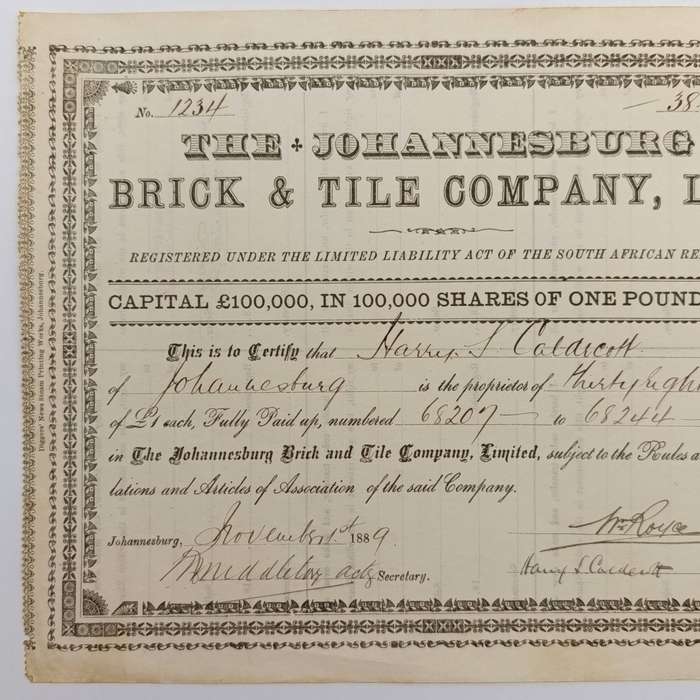 No. 1234 — 38
THE JOHANNESBURG
BRICK & TILE COMPANY, L
REGISTERED UNDER THE LIMITED LIABILITY ACT OF THE SOUTH AFRICAN RE
CAPITAL £100,000, IN 100,000 SHARES OF ONE POUND
This is to Certify that Harry S. Caldecott
of Johannesburg is the proprietor of thirty eight
of £1 each, Fully Paid up, numbered 68207 — to 68244 —
in The Johannesburg Brick and Tile Company, Limited, subject to the Rules a
lations and Articles of Association of the said Company.
Johannesburg, November 1st 1889.
Wm Royce
Middleton actg Secretary.
Harry S. Caldecott
Diggers' News Steam Printing Works, Johannesburg.